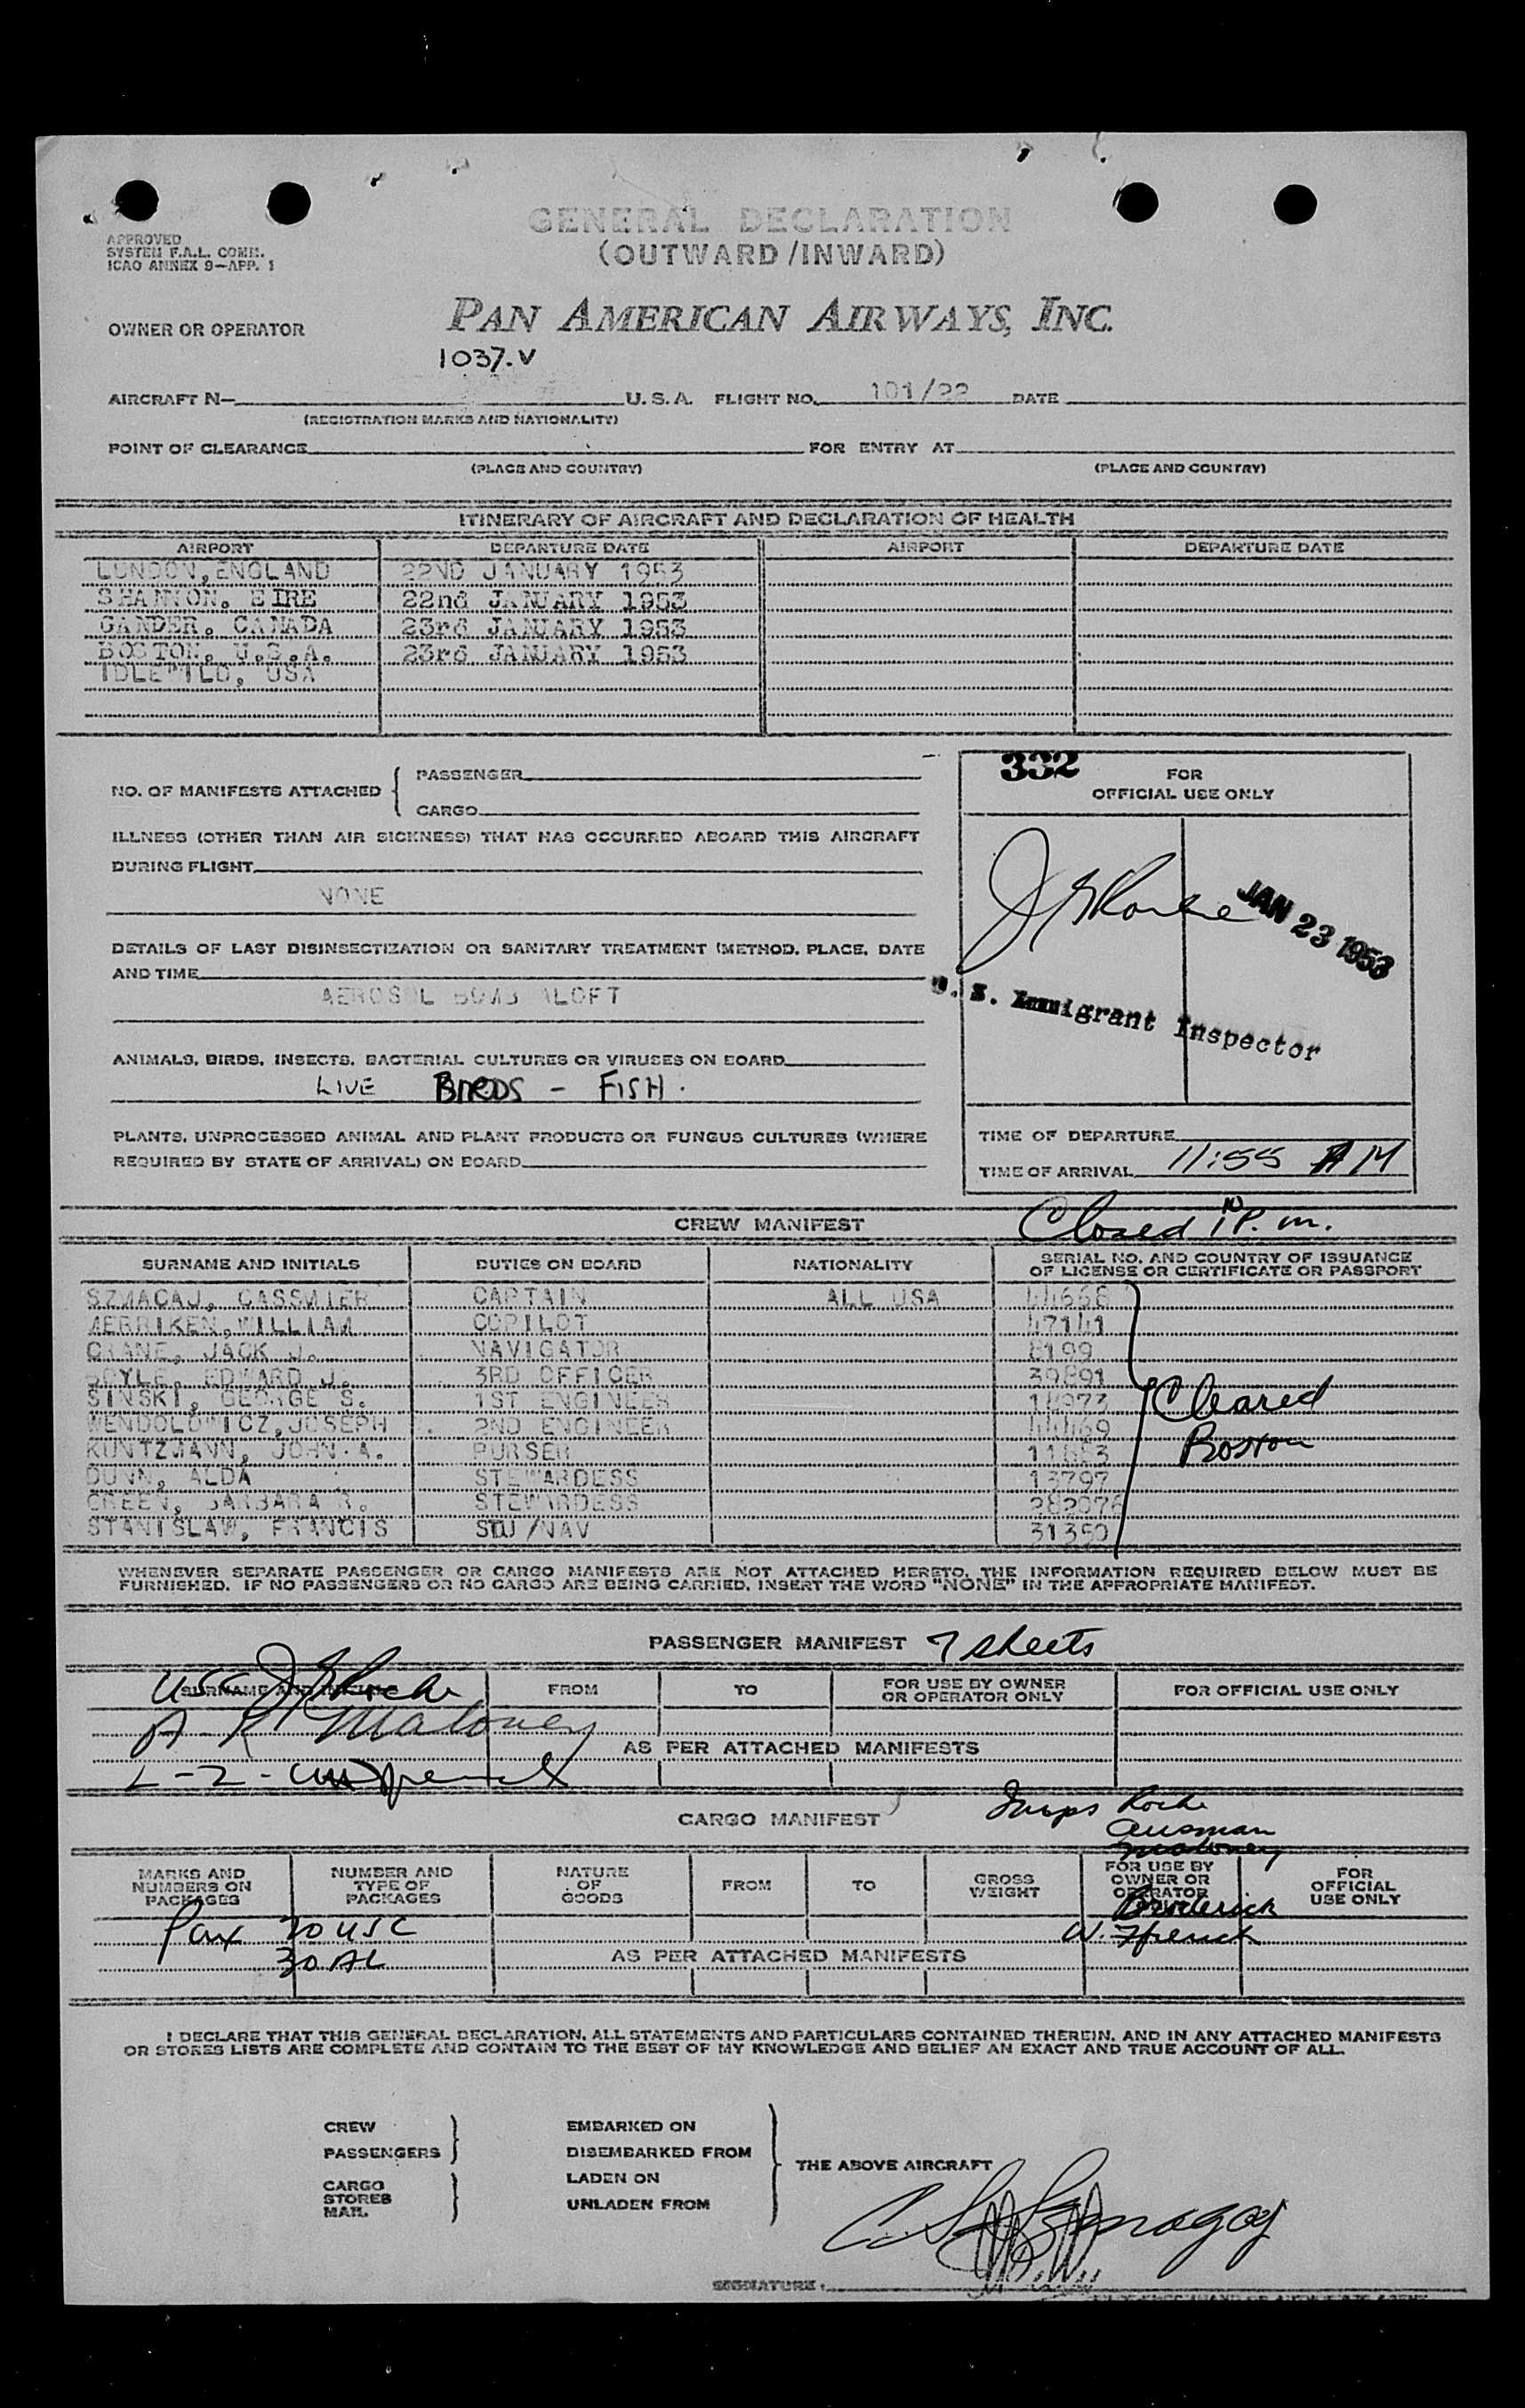 GENERAL DECLARATION
(OUTWARD/INWARD)
APPROVED
SYSTEM F.A.L. COMM.
ICAO ANNEX 9—APP. 1
OWNER OR OPERATOR PAN AMERICAN AIRWAYS, INC.
1037.V
AIRCRAFT N— U. S. A. FLIGHT NO. 101/22 DATE
(REGISTRATION MARKS AND NATIONALITY)
POINT OF CLEARANCE FOR ENTRY AT
(PLACE AND COUNTRY) (PLACE AND COUNTRY)
ITINERARY OF AIRCRAFT AND DECLARATION OF HEALTH
AIRPORT DEPARTURE DATE AIRPORT DEPARTURE DATE
LONDON, ENGLAND 22ND JANUARY 1953
SHANNON. EIRE 22nd JANUARY 1953
GANDER. CANADA 23rd JANUARY 1953
BOSTON, U.S.A. 23rd JANUARY 1953
IDLEWILD, USA
332
FOR
OFFICIAL USE ONLY
NO. OF MANIFESTS ATTACHED { PASSENGER
CARGO
ILLNESS (OTHER THAN AIR SICKNESS) THAT HAS OCCURRED ABOARD THIS AIRCRAFT
DURING FLIGHT
NONE
JAN 23 1953
DETAILS OF LAST DISINSECTIZATION OR SANITARY TREATMENT (METHOD, PLACE, DATE
AND TIME
AEROSOL BOMB ALOFT
U. S. Immigrant Inspector
ANIMALS, BIRDS, INSECTS, BACTERIAL CULTURES OR VIRUSES ON BOARD
LIVE BIRDS - FISH.
PLANTS, UNPROCESSED ANIMAL AND PLANT PRODUCTS OR FUNGUS CULTURES (WHERE
REQUIRED BY STATE OF ARRIVAL) ON BOARD
TIME OF DEPARTURE
TIME OF ARRIVAL 11:55 AM
CREW MANIFEST Closed P.m.
SURNAME AND INITIALS DUTIES ON BOARD NATIONALITY SERIAL NO. AND COUNTRY OF ISSUANCE
OF LICENSE OR CERTIFICATE OR PASSPORT
SZMAGAJ, CASSMIER CAPTAIN ALL USA 44668
MERRIKEN, WILLIAM COPILOT 47141
CRANE, JACK J. NAVIGATOR 8199
DOYLE, EDWARD J. 3RD OFFICER 39891
SINSKI, GEORGE S. 1ST ENGINEER
WENDOLOWICZ, JOSEPH 2ND ENGINEER
KUNTZMANN, JOHN A. PURSER
DUNN, ALDA STEWARDESS 13797
GREEN, BARBARA R. STEWARDESS 282076
STANISLAW, FRANCIS STU/NAV 31350
Cleared
Boston
WHENEVER SEPARATE PASSENGER OR CARGO MANIFESTS ARE NOT ATTACHED HERETO, THE INFORMATION REQUIRED BELOW MUST BE
FURNISHED. IF NO PASSENGERS OR NO CARGO ARE BEING CARRIED, INSERT THE WORD "NONE" IN THE APPROPRIATE MANIFEST.
PASSENGER MANIFEST 7 sheets
SURNAME AND INITIALS FROM TO FOR USE BY OWNER
OR OPERATOR ONLY FOR OFFICIAL USE ONLY
USC J Roche
A - R Maloney
AS PER ATTACHED MANIFESTS
L-2-
CARGO MANIFEST
Insps Roche
Ausman
Maloney
MARKS AND
NUMBERS ON
PACKAGES
NUMBER AND
TYPE OF
PACKAGES
NATURE
OF
GOODS
FROM TO GROSS
WEIGHT
FOR USE BY
OWNER OR
OPERATOR
FOR
OFFICIAL
USE ONLY
Broderick
Pax 20 USC
30 AL
W. French
AS PER ATTACHED MANIFESTS
I DECLARE THAT THIS GENERAL DECLARATION, ALL STATEMENTS AND PARTICULARS CONTAINED THEREIN, AND IN ANY ATTACHED MANIFESTS
OR STORES LISTS ARE COMPLETE AND CONTAIN TO THE BEST OF MY KNOWLEDGE AND BELIEF AN EXACT AND TRUE ACCOUNT OF ALL.
CREW
PASSENGERS
CARGO
STORES
MAIL
EMBARKED ON
DISEMBARKED FROM
LADEN ON
UNLADEN FROM
THE ABOVE AIRCRAFT
SIGNATURE: